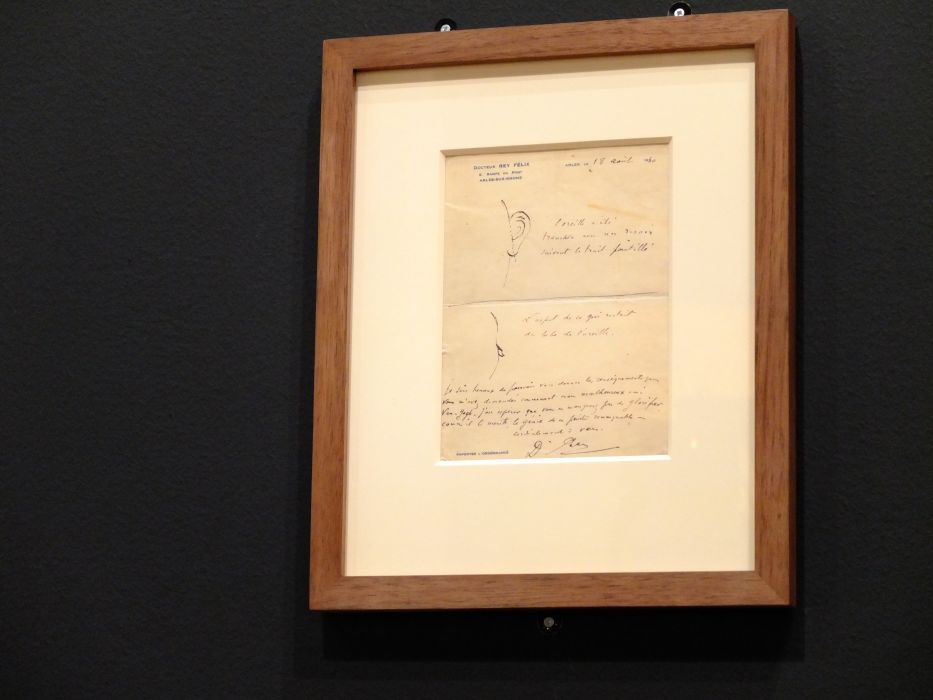 DOCTEUR REY FÉLIX
6, RAMPE DU PONT
ARLES-SUR-RHONE
ARLES, LE 18 août 30
l'oreille a été
tranchée avec un rasoir
suivant le trait pointillé
L'aspect de ce qui restait
du lobe de l'oreille.
Je suis heureux de pouvoir vous donner les renseignements que
vous m'avez demandés concernant mon malheureux ami
Van Gogh. J'ose espérer que vous ne manquerez pas de glorifier
comme il le mérite le génie de ce peintre remarquable
cordialement à vous.
Dr Rey
RAPPORTER L'ORDONNANCE